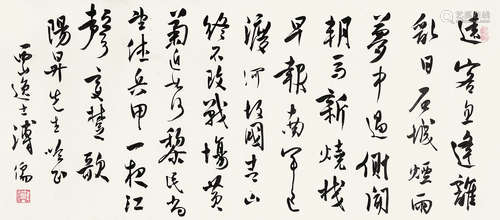 遠客忽逢離
亂日石城煙雨
夢中過側聞
胡馬新燒棧
早報南軍已
渡河故國青山
終不改戰場黃
菊近如何黎民尚
望休兵甲一夜江
聲變楚歌
陽昇先生吟正
西山逸士溥儒